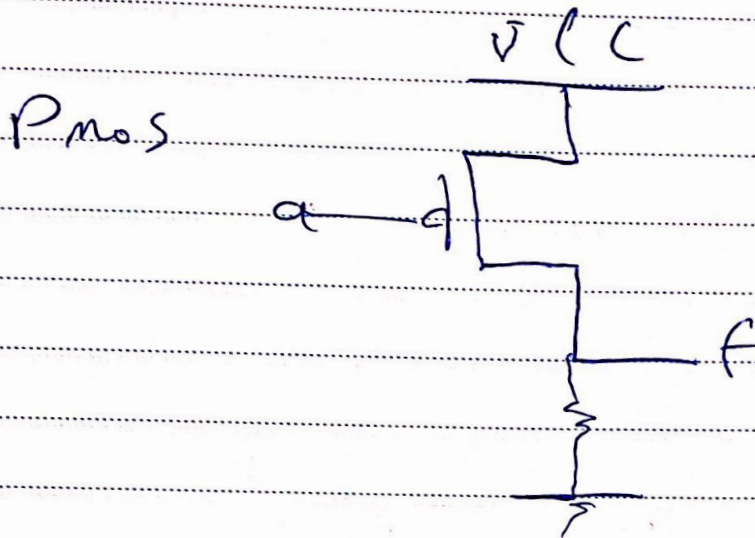 VCC
PMOS
a
f